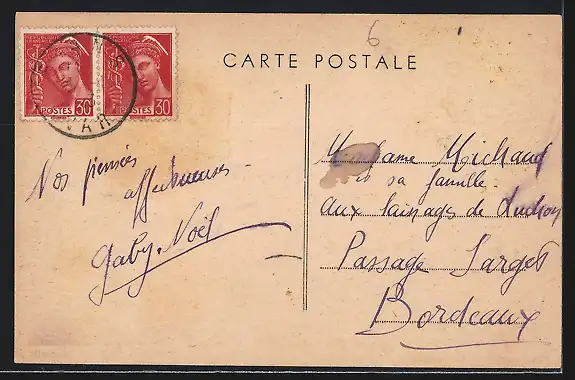 6
CARTE POSTALE
POSTES 30
POSTES 30
VAR
Nos pensées
affectueuses.
Gaby. Noël
Madame Michaud
et sa famille.
Aux lainages de Luchon
Passage Sarget
Bordeaux